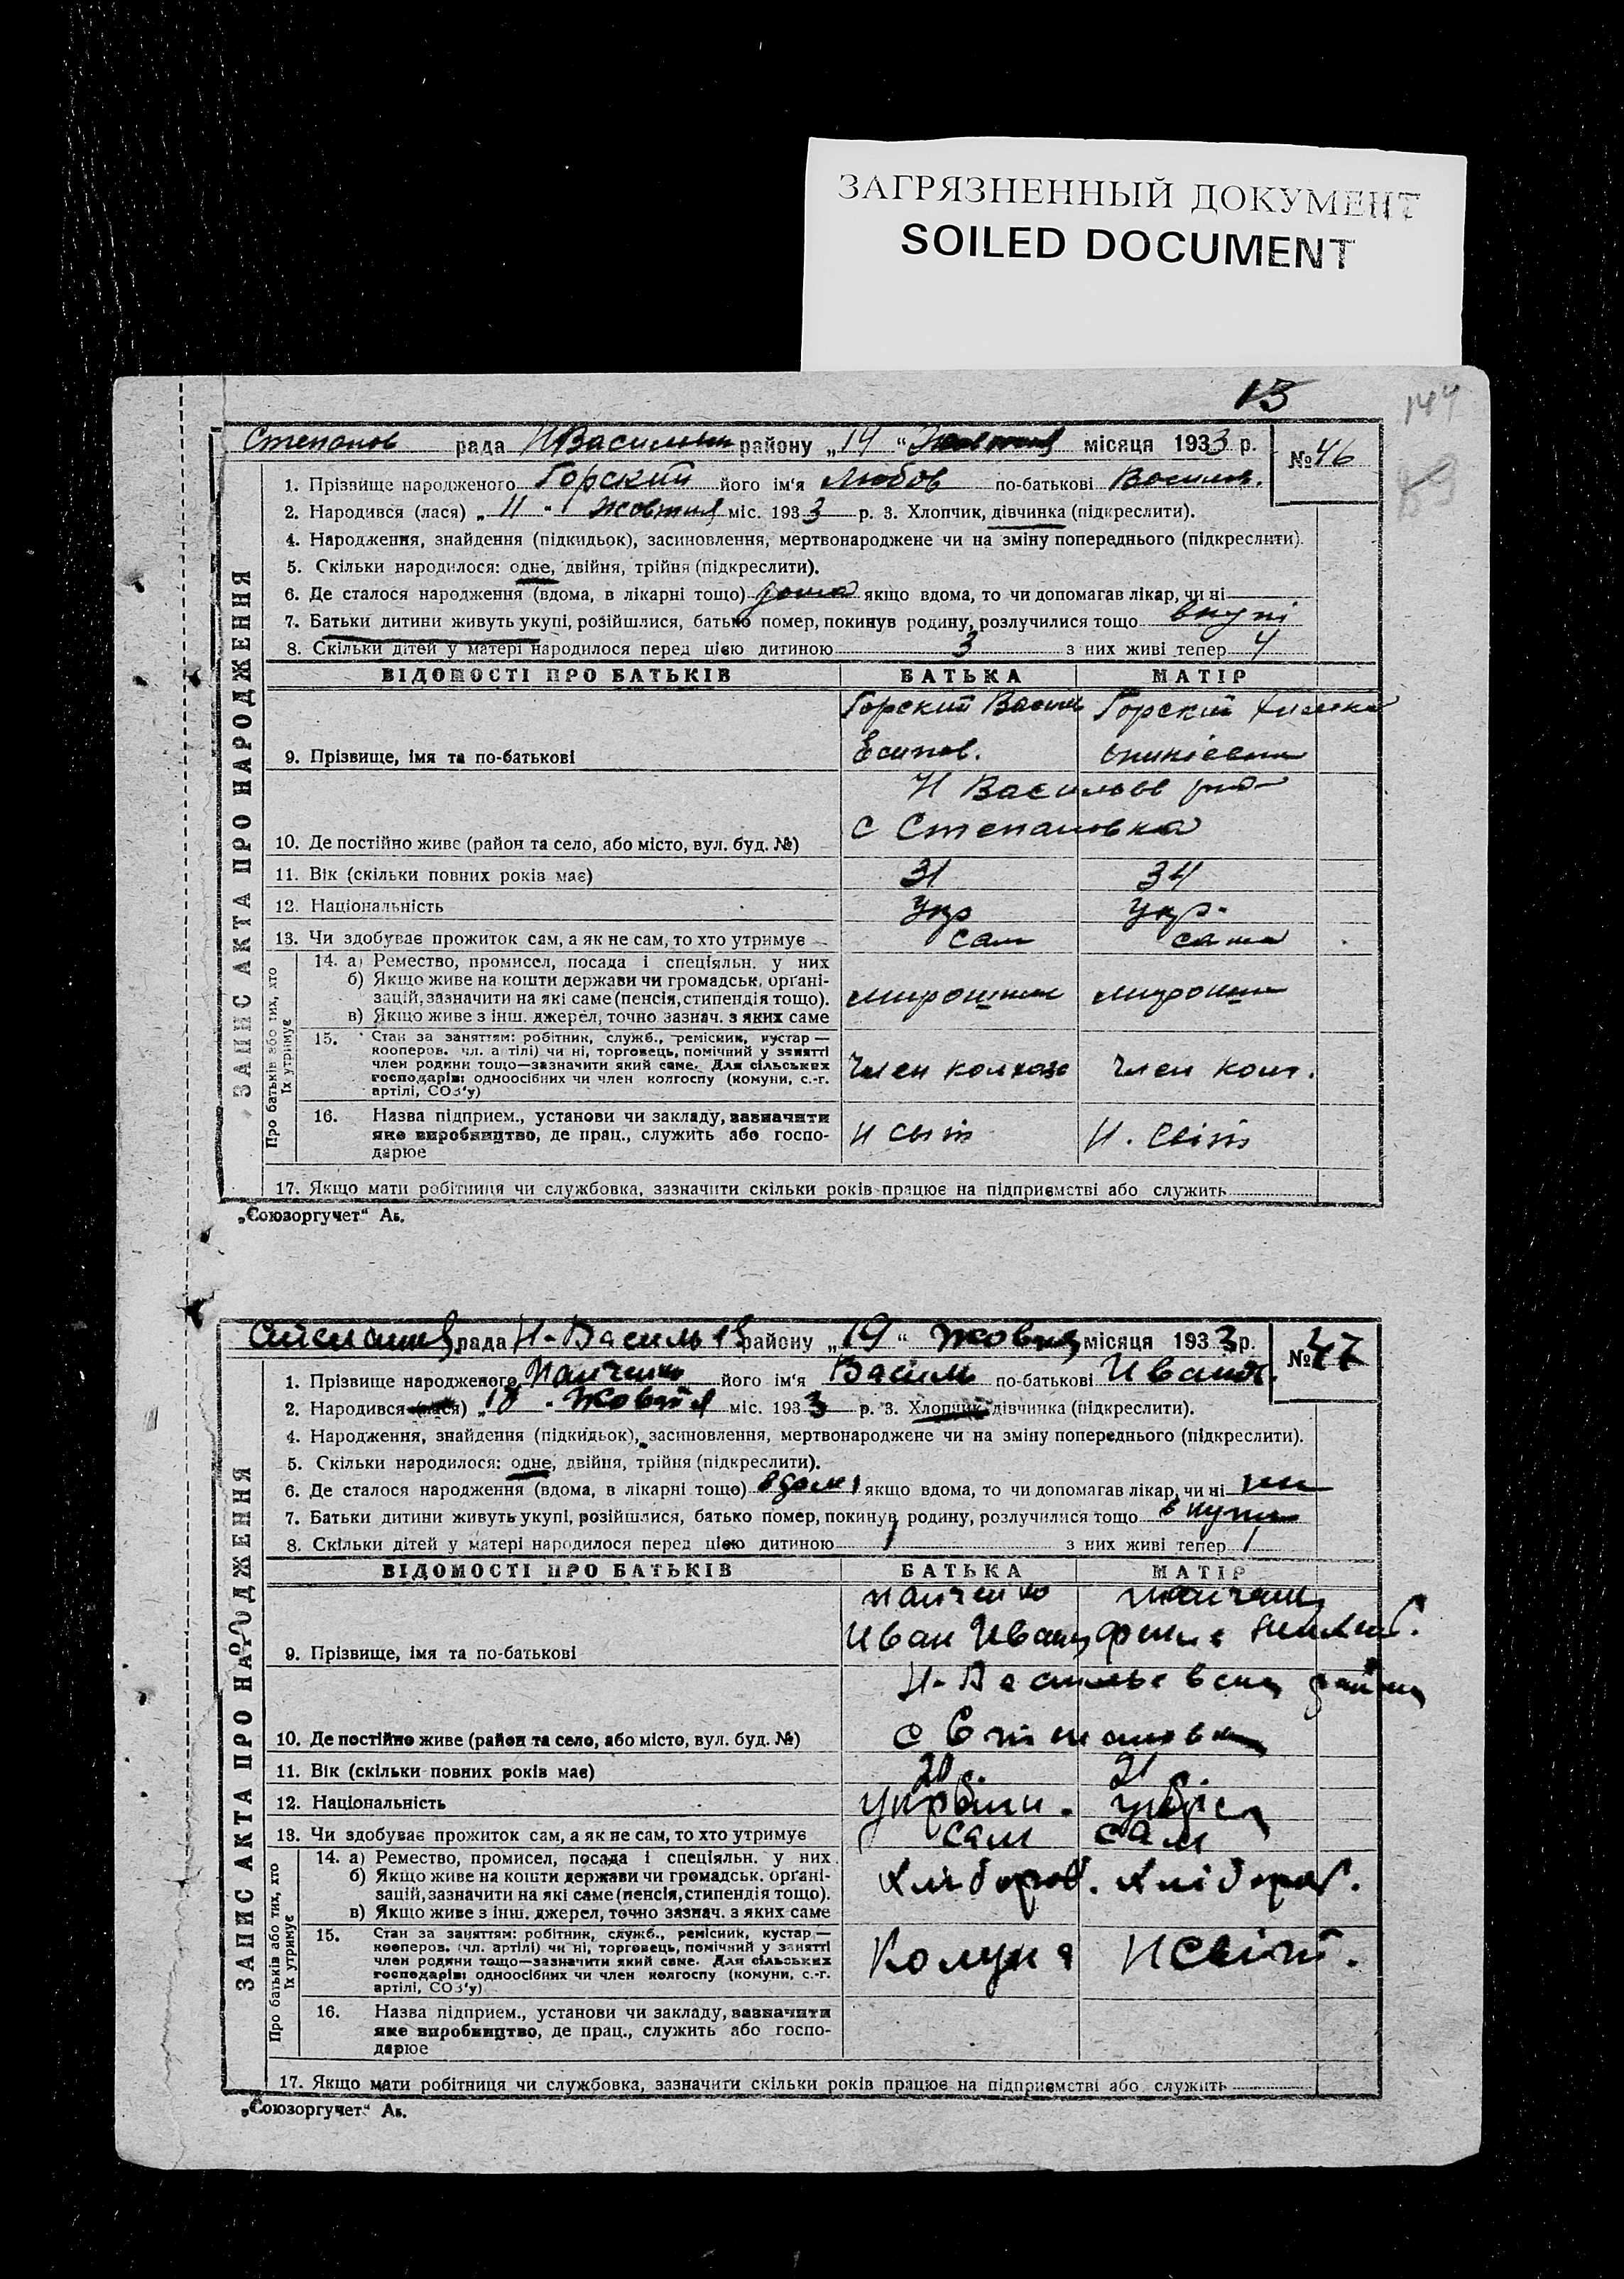 ЗАГРЯЗНЕННЫЙ ДОКУМЕНТ
SOILED DOCUMENT
13
144
83
Степанов рада Н Василь району „14“ місяця 1933 р.
№ 46
1. Прізвище народженого Горский його ім'я Любов по-батькові Василов.
2. Народився (лася) „11“ Жовтня міс. 1933 р. 3. Хлопчик, дівчинка (підкреслити).
4. Народження, знайдення (підкидьок), засиновлення, мертвонароджене чи на зміну попереднього (підкреслити).
5. Скільки народилося: одне, двійня, трійня (підкреслити).
6. Де сталося народження (вдома, в лікарні тощо) дома якщо вдома, то чи допомагав лікар, чи ні
7. Батьки дитини живуть укупі, розійшлися, батько помер, покинув родину, розлучилися тощо вкупі
8. Скільки дітей у матері народилося перед цією дитиною 3 з них живі тепер 4
ЗАПИС АКТА ПРО НАРОДЖЕННЯ
ВІДОМОСТІ ПРО БАТЬКІВ БАТЬКА МАТІР
Горский Васил Горский
9. Прізвище, імя та по-батькові Есипов.
Н Васильев
10. Де постійно живе (район та село, або місто, вул. буд. №) с Степановка
11. Вік (скільки повних років має) 31 34
12. Національність Укр Укр.
13. Чи здобуває прожиток сам, а як не сам, то хто утримує сам сама
Про батьків або тих, хто їх утримує
14. а) Ремество, промисел, посада і спеціяльн. у них
б) Якщо живе на кошти держави чи громадськ. органі-
зацій, зазначити на які саме (пенсія, стипендія тощо). мирошник
в) Якщо живе з інш. джерел, точно зазнач. з яких саме
15. Стан за заняттям: робітник, служб., ремісник, кустар —
кооперов. чл. артілі) чи ні, торговець, помічний у занятті
член родини тощо—зазначити який саме. Для сільських Член колхоз Член колг.
господарів: одноосібних чи член колгоспу (комуни, с.-г.
артілі, СОЗ'у)
16. Назва підприєм., установи чи закладу, зазначити
яке виробництво, де прац., служить або госпо- Н світ Н. Світ
дарює
17. Якщо мати робітниця чи службовка, зазначити скільки років працює на підприємстві або служить
„Союзоргучет“ Ав.
рада Н-Василь району „19“ Жовтня місяця 1933 р.
№ 47
1. Прізвище народженого Панченко його ім'я Василь по-батькові Иванов.
2. Народився (лася) „18“ Жовтня міс. 1933 р. 3. Хлопчик, дівчинка (підкреслити).
4. Народження, знайдення (підкидьок), засиновлення, мертвонароджене чи на зміну попереднього (підкреслити).
5. Скільки народилося: одне, двійня, трійня (підкреслити).
6. Де сталося народження (вдома, в лікарні тощо) вдома якщо вдома, то чи допомагав лікар, чи ні ни
7. Батьки дитини живуть укупі, розійшлися, батько помер, покинув родину, розлучилися тощо вкупи
8. Скільки дітей у матері народилося перед цією дитиною 1 з них живі тепер 1
ЗАПИС АКТА ПРО НАРОДЖЕННЯ
ВІДОМОСТІ ПРО БАТЬКІВ БАТЬКА МАТІР
Панченко Панченко
9. Прізвище, імя та по-батькові Иван Иван
Н-Васильевски район
10. Де постійно живе (район та село, або місто, вул. буд. №) с Степановка
11. Вік (скільки повних років має) 20 21
12. Національність
13. Чи здобуває прожиток сам, а як не сам, то хто утримує сам сам
Про батьків або тих, хто їх утримує
14. а) Ремество, промисел, посада і спеціяльн. у них
б) Якщо живе на кошти держави чи громадськ. органі- Хлібороб. Хлібороб.
зацій, зазначити на які саме (пенсія, стипендія тощо).
в) Якщо живе з інш. джерел, точно зазнач. з яких саме
15. Стан за заняттям: робітник, служб., ремісник, кустар —
кооперов. (чл. артілі) чи ні, торговець, помічний у занятті
член родини тощо—зазначити який саме. Для сільських Комуна Н Світ.
господарів: одноосібних чи член колгоспу (комуни, с.-г.
артілі, СОЗ'у)
16. Назва підприєм., установи чи закладу, зазначити
яке виробництво, де прац., служить або госпо-
дарює
17. Якщо мати робітниця чи службовка, зазначити скільки років працює на підприємстві або служить
„Союзоргучет“ Ав.